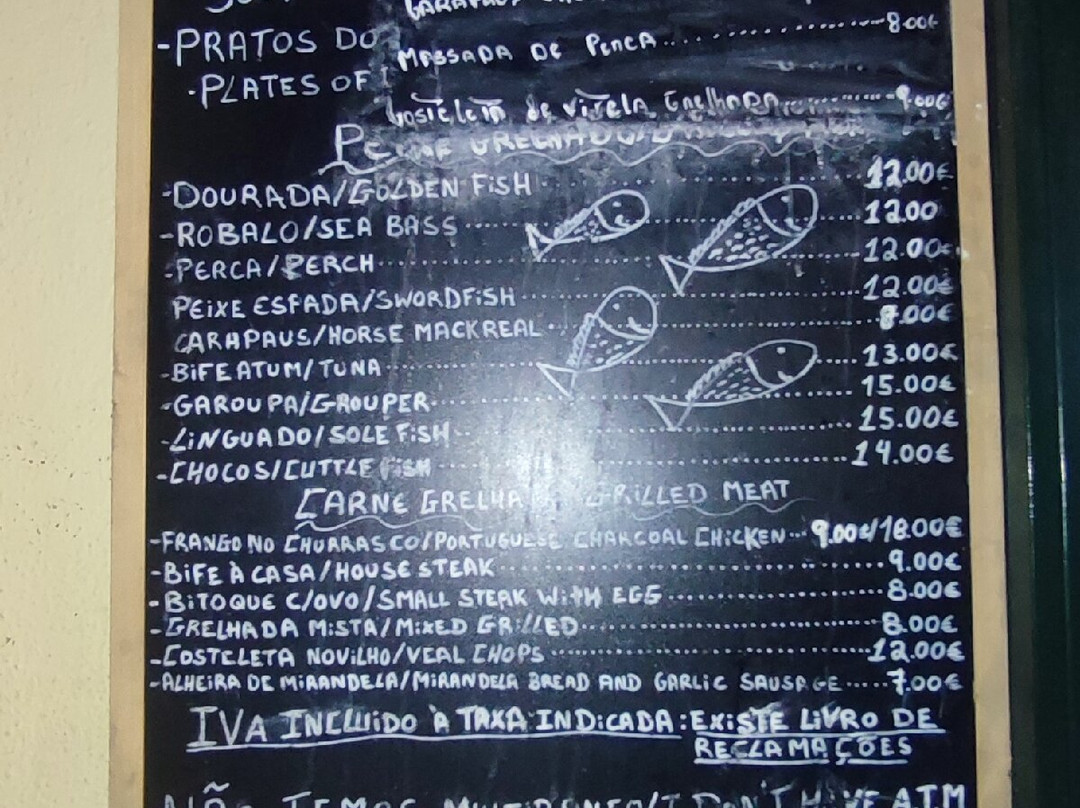 -PRATOS DO
MASSADA DE PERCA...............8.00€
-PLATES OF
Costeleta de vitela Grelhada............9.00€
-DOURADA/GOLDEN FISH...............12.00€
-ROBALO/SEA BASS...............12.00
-PERCA/PERCH...............12.00€
PEIXE ESPADA/SWORDFISH...............12.00€
CARAPAUS/HORSE MACKREAL...............8.00€
-BIFE ATUM/TUNA...............13.00€
-GAROUPA/GROUPER...............15.00€
-LINGUADO/SOLE FISH...............15.00€
-CHOCOS/CUTTLE FISH...............14.00€
CARNE GRELHA GRILLED MEAT
-FRANGO NO CHURRASCO/PORTUGUESE CHARCOAL CHICKEN...9.00€/18.00€
-BIFE À CASA/HOUSE STEAK...............9.00€
-BITOQUE C/OVO/SMALL STEAK WITH EGG...............8.00€
-GRELHADA MISTA/MIXED GRILLED...............8.00€
-COSTELETA NOVILHO/VEAL CHOPS...............12.00€
-ALHEIRA DE MIRANDELA/MIRANDELA BREAD AND GARLIC SAUSAGE.....7.00€
IVA INCLUIDO À TAXA INDICADA: EXISTE LIVRO DE
RECLAMAÇÕES
NÃO TEMOS MULTIBANCO/I DON'T HAVE ATM